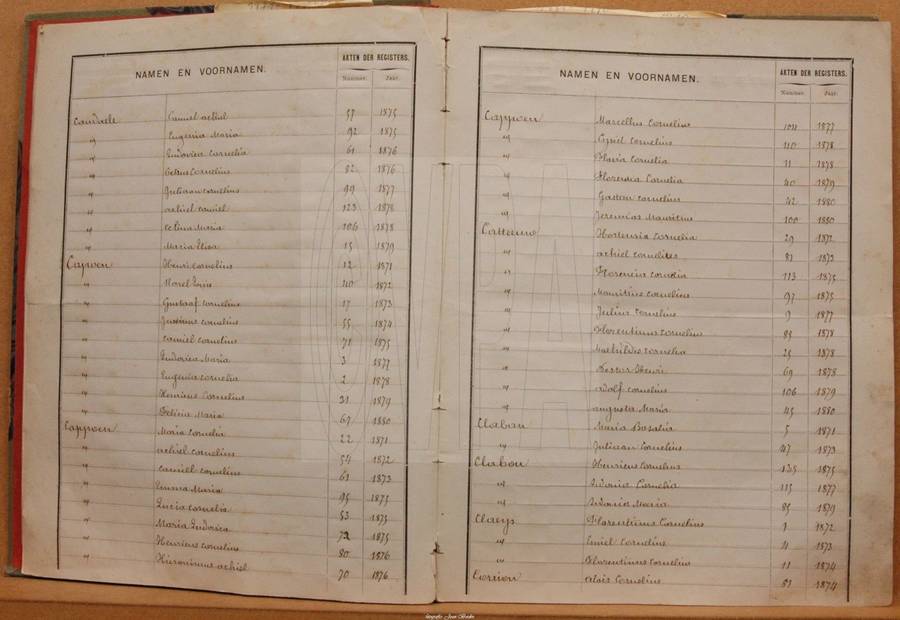 NAMEN EN VOORNAMEN. AKTEN DER REGISTERS.
Nummer. Jaar.
Camiel achiel 57 1875
" Eugenia Maria 92 1875
" Ludovica Cornelia 61 1876
" Celsus Cornelius 82 1876
" Juliaan Cornelius 99 1877
" achiel camiel 123 1878
" Celina Maria 106 1878
" Maria Elisa 15 1879
Capoen Henri Cornelius 12 1871
" 1872
" Gustaaf Cornelius 17 1873
" Justinus Cornelius 55 1874
" Camiel Cornelius 71 1875
" Ludovica Maria 3 1877
" Eugenia Cornelia 2 1878
" Henricus Cornelius 31 1879
" Felicia Maria 67 1880
Cappoen Maria Cornelia 22 1871
" achiel Cornelius 54 1872
" Camiel Cornelius 61 1873
" Emma Maria 95 1875
" Lucia Cornelia 53 1875
" Maria Ludovica 72 1875
" Henricus Cornelius 80 1876
" Hieronimus achiel 70 1876
NAMEN EN VOORNAMEN. AKTEN DER REGISTERS.
Nummer. Jaar.
Cappoen Marcellus Cornelius 1877
" Cyriel Cornelius 110 1878
" Flavia Cornelia 11 1878
" Florentia Cornelia 40 1879
" Gaston Cornelius 42 1880
" Jeremias Mauritius 100 1880
Hortensia Cornelia 29 1872
" achiel Cornelius 81 1873
" Cornelia 113 1875
" Mauritius Cornelius 97 1875
" Julius Cornelius 9 1877
" Florentinus Cornelius 85 1878
" Mathildis Cornelia 25 1878
" Henri 69 1878
" adolf Cornelius 106 1879
" augusta Maria 45 1880
Clabau Maria Rosalia 5 1871
" Juliaan Cornelius 47 1873
Clabou Henricus Cornelius 135 1875
" Sidonia Cornelia 115 1877
" Sidonia Maria 85 1879
Claeys Florentinus Cornelius 1 1872
" Emiel Cornelius 4 1873
" Florentinus Cornelius 11 1874
alois Cornelius 51 1874